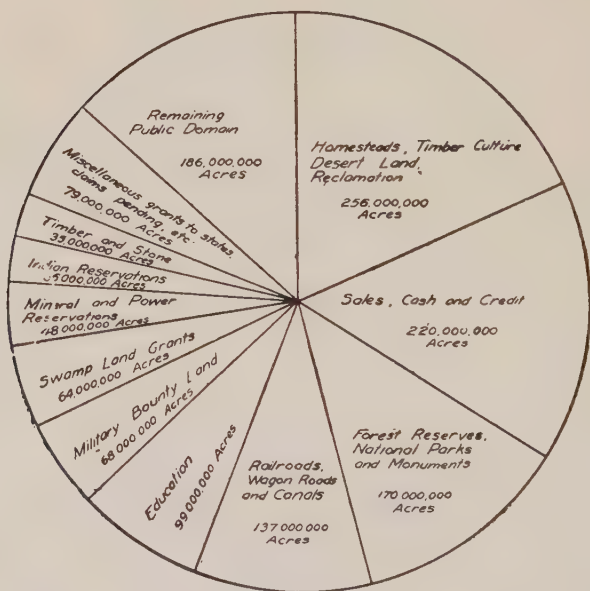 Remaining
Public Domain
186,000,000
Acres
Homesteads, Timber Culture
Desert Land,
Reclamation
256,000,000
Acres
Sales, Cash and Credit
220,000,000
Acres
Forest Reserves,
National Parks
and Monuments
170,000,000
Acres
Railroads,
Wagon Roads
and Canals
137,000,000
Acres
Education
99,000,000 Acres
Military Bounty Land
68,000,000 Acres
Swamp Land Grants
64,000,000 Acres
Mineral and Power
Reservations
48,000,000 Acres
Indian Reservations
Acres
Timber and Stone
Acres
Miscellaneous grants to states,
claims pending, etc.
79,000,000 Acres